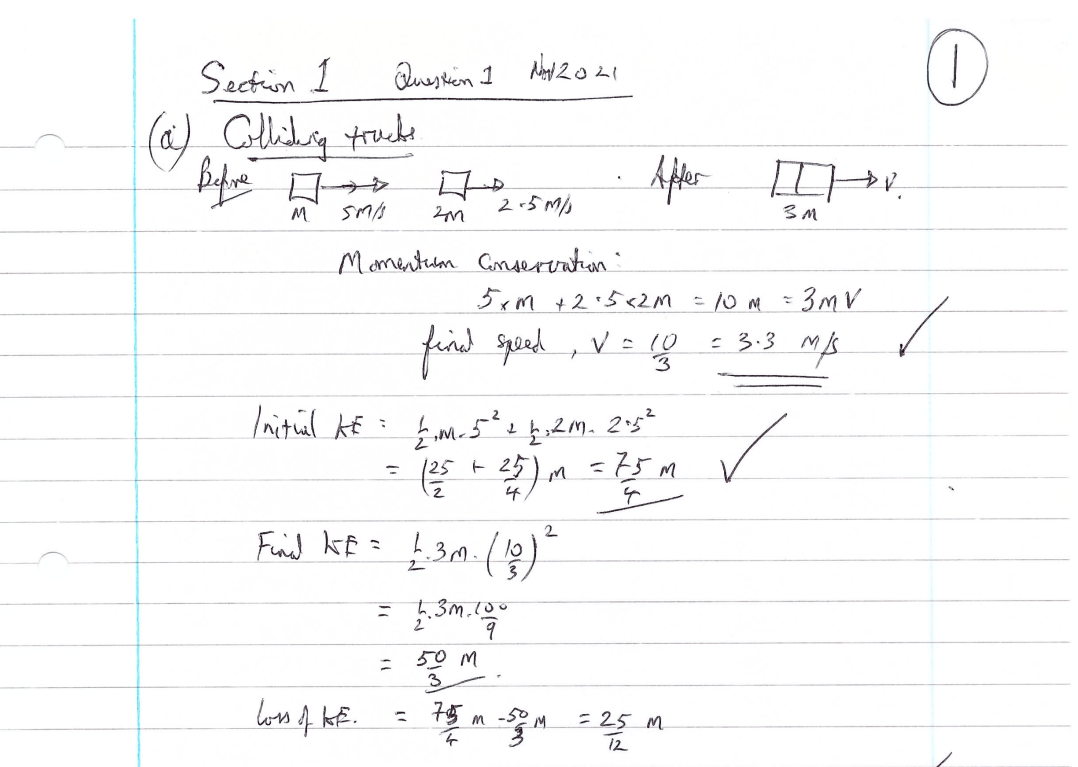 Section 1 Question 1 Nov 2021
1
(a) Colliding trucks
Before After
M 5 m/s 2m 2.5 m/s 3M V.
Momentum Conservation:
5 × m + 2.5 × 2m = 10 m = 3mV
final speed, V = 10/3 = 3.3 m/s ✓
Initial KE = 1/2.m.5² + 1/2.2m.2.5²
= (25/2 + 25/4) m = 75/4 m ✓
Final KE = 1/2.3m.(10/3)²
= 1/2.3m.100/9
= 50/3 M.
Loss of KE. = 75/4 m - 50/3 M = 25/12 m